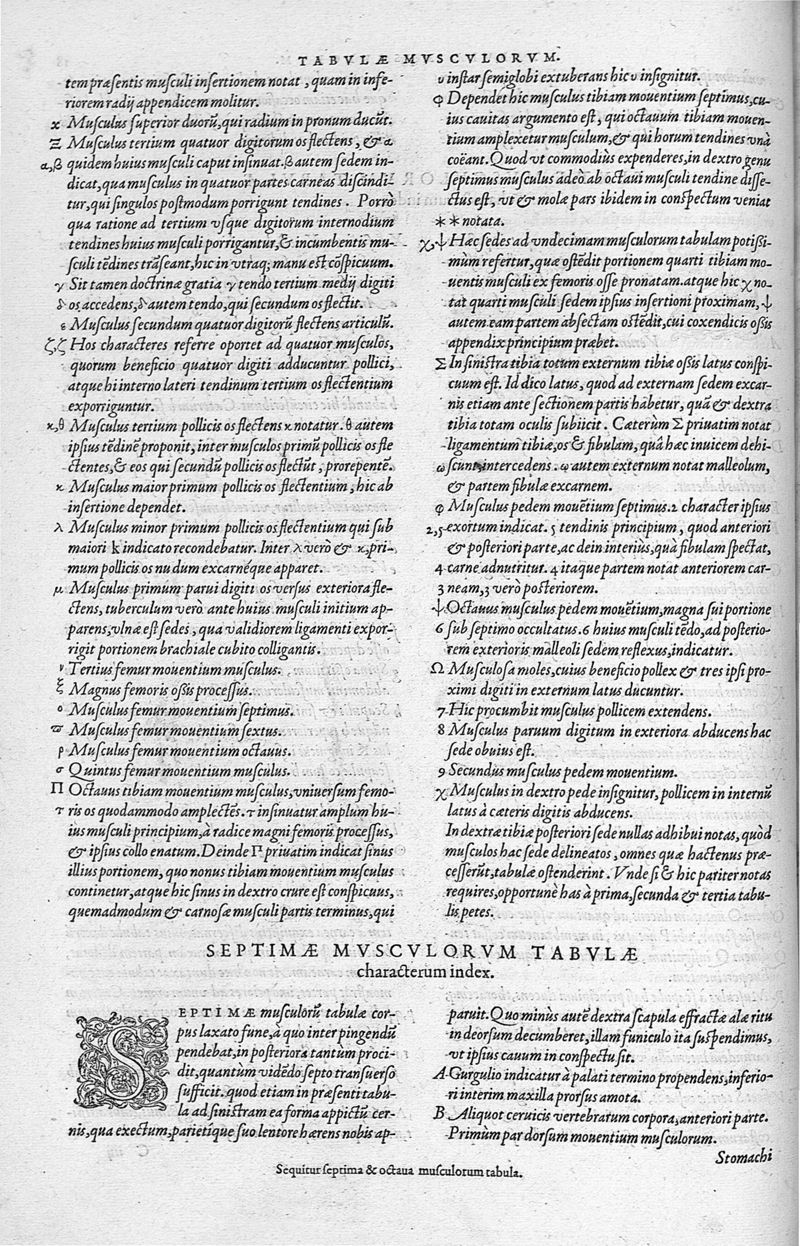 TABVLÆ MVSCVLORVM.
tem præsentis musculi insertionem notat, quam in infe-
riorem radij appendicem molitur.
ϰ Musculus superior duorū, qui radium in pronum ducūt.
Ξ Musculus tertium quatuor digitorum os flectens, & α
α,β quidem huius musculi caput insinuat. β autem sedem in-
dicat, qua musculus in quatuor partes carneas discindi-
tur, qui singulos postmodum porrigunt tendines. Porrò
qua ratione ad tertium vsque digitorum internodium
tendines huius musculi porrigantur, & incumbentis mu-
sculi tēdines trāseant, hic in vtraq; manu est cōspicuum.
γ Sit tamen doctrinæ gratia γ tendo tertium medij digiti
δ os accedens, δ autem tendo, qui secundum os flectit.
ε Musculus secundum quatuor digitorū flectens articulū.
ζ,ζ Hos characteres referre oportet ad quatuor musculos,
quorum beneficio quatuor digiti adducuntur pollici,
atque hi interno lateri tendinum tertium os flectentium
exporriguntur.
κ,θ Musculus tertium pollicis os flectens κ notatur. θ autem
ipsius tēdinē proponit, inter musculos primū pollicis os fle
ctentes, & eos qui secundū pollicis os flectūt, prorepentē.
κ Musculus maior primum pollicis os flectentium, hic ab
insertione dependet.
λ Musculus minor primum pollicis os flectentium qui sub
maiori k indicato recondebatur. Inter λ verò & κ, pri-
mum pollicis os nudum excarnéque apparet.
μ Musculus primum parui digiti os versus exteriora fle-
ctens, tuberculum verò ante huius musculi initium ap-
parens, vlnæ est sedes, qua validiorem ligamenti expor-
rigit portionem brachiale cubito colligantis.
ν Tertius femur mouentium musculus.
ξ Magnus femoris ossis processus.
ο Musculus femur mouentium septimus.
ϖ Musculus femur mouentium sextus.
ρ Musculus femur mouentium octauus.
σ Quintus femur mouentium musculus.
Π Octauus tibiam mouentium musculus, vniuersum femo-
τ ris os quodammodo amplectēs. τ insinuatur amplum hu-
ius musculi principium, à radice magni femoris processus,
& ipsius collo enatum. Deinde Γ priuatim indicat sinus
illius portionem, quo nonus tibiam mouentium musculus
continetur, atque hic sinus in dextro crure est conspicuus,
quemadmodum & carnosæ musculi partis terminus, qui
υ instar semiglobi extuberans hic υ insignitur.
φ Dependet hic musculus tibiam mouentium septimus, cu-
ius cauitas argumento est, qui octauum tibiam mouen-
tium amplexetur musculum, & qui horum tendines vnà
coëant. Quod vt commodius expenderes, in dextro genu
septimus musculus adeò ab octaui musculi tendine disse-
ctus est, vt & molæ pars ibidem in conspectum veniat
✳ ✳ notata.
χ,ψ Hæc sedes ad vndecimam musculorum tabulam potissi-
mùm refertur, quæ ostēdit portionem quarti tibiam mo-
uentis musculi ex femoris osse pronatam. atque hic χ no-
tat quarti musculi sedem ipsius insertioni proximam, ψ
autem eam partem absectam ostēdit, cui coxendicis ossis
appendix principium præbet.
Σ In sinistra tibia totum externum tibiæ ossis latus conspi-
cuum est. Id dico latus, quod ad externam sedem excar-
nis etiam ante sectionem partis habetur, quā & dextra
tibia totam oculis subiicit. Cæterùm Σ priuatim notat
ligamentum tibiæ, os & fibulam, quâ hæc inuicem dehi-
ω scunt, intercedens. ω autem externum notat malleolum,
& partem fibulæ excarnem.
φ Musculus pedem mouētium septimus. 2 character ipsius
2,5 exortum indicat. 5 tendinis principium, quod anteriori
& posteriori parte, ac dein interius, quà fibulam spectat,
4 carne adnutritur. 4 itaque partem notat anteriorem car-
3 neam, 3 verò posteriorem.
ψ Octauus musculus pedem mouētium, magna sui portione
6 sub septimo occultatus. 6 huius musculi tēdo, ad posterio-
rem exterioris malleoli sedem reflexus, indicatur.
Ω Musculosa moles, cuius beneficio pollex & tres ipsi pro-
ximi digiti in externum latus ducuntur.
7 Hic procumbit musculus pollicem extendens.
8 Musculus paruum digitum in exteriora abducens hac
sede obuius est.
9 Secundus musculus pedem mouentium.
χ Musculus in dextro pede insignitur, pollicem in internū
latus à cæteris digitis abducens.
In dextræ tibiæ posteriori sede nullas adhibui notas, quòd
musculos hac sede delineatos, omnes quæ hactenus præ-
cesserūt, tabulæ ostenderint. Vnde si & hic pariter notas
requires, opportunè has à prima, secunda & tertia tabu-
lis petes.
SEPTIMÆ MVSCVLORVM TABVLÆ
characterum index.
SEPTIMÆ musculorū tabulæ cor-
pus laxato fune, à quo inter pingendū
pendebat, in posteriora tantùm proci-
dit, quantùm vidēdo septo transuerso
sufficit. quod etiam in præsenti tabu-
la ad sinistram ea forma appictū cer-
nis, qua exectum, parietíque suo lentore hærens nobis ap-
paruit. Quo minùs autē dextra scapula effractæ alæ ritu
in deorsum decumberet, illam funiculo ita suspendimus,
vt ipsius cauum in conspectu sit.
A Gurgulio indicatur à palati termino propendens, inferio-
ri interim maxilla prorsus amota.
B Aliquot ceruicis vertebrarum corpora, anteriori parte.
Primùm par dorsum mouentium musculorum.
Stomachi
Sequitur septima & octaua musculorum tabula.